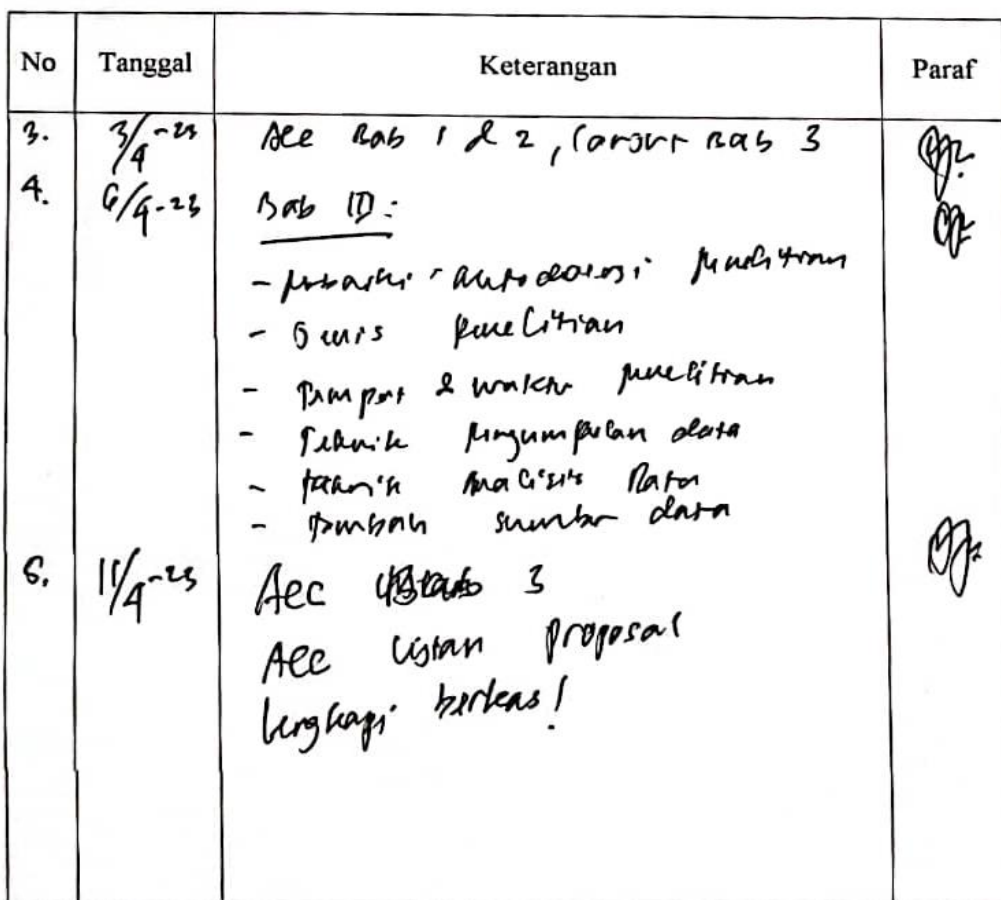 No Tanggal Keterangan Paraf
3. 3/4-23 Acc Bab 1 & 2, lanjut Bab 3
4. 6/4-23 Bab III:
- penelitian
- Jenis penelitian
- Tempat & waktu penelitian
- Teknik pengumpulan data
- teknik analisis data
- tambah sumber data
5. 11/4-23 Acc Bab 3
Acc Ujian proposal
lengkapi berkas!